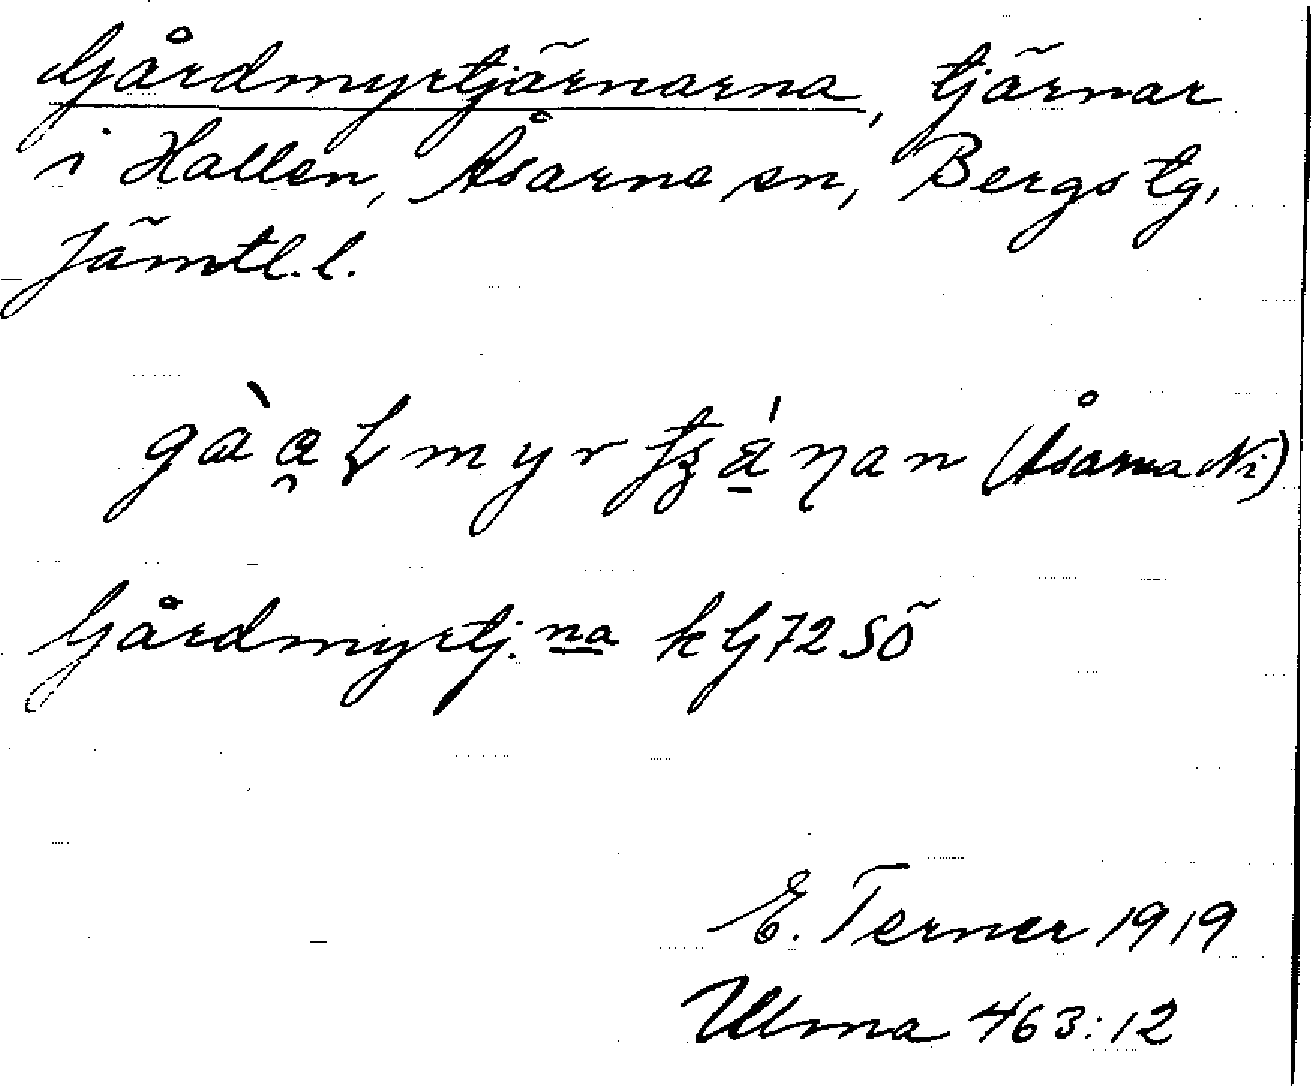 Gårdmyrtjärnarna, tjärnar
i Hallen, Åsarne sn, Bergs tg,
Jämtl. l.
(Åsarna Ni)
Gårdmyrtj:na k G72SÖ
E. Terner 1919
Ulma 463:12